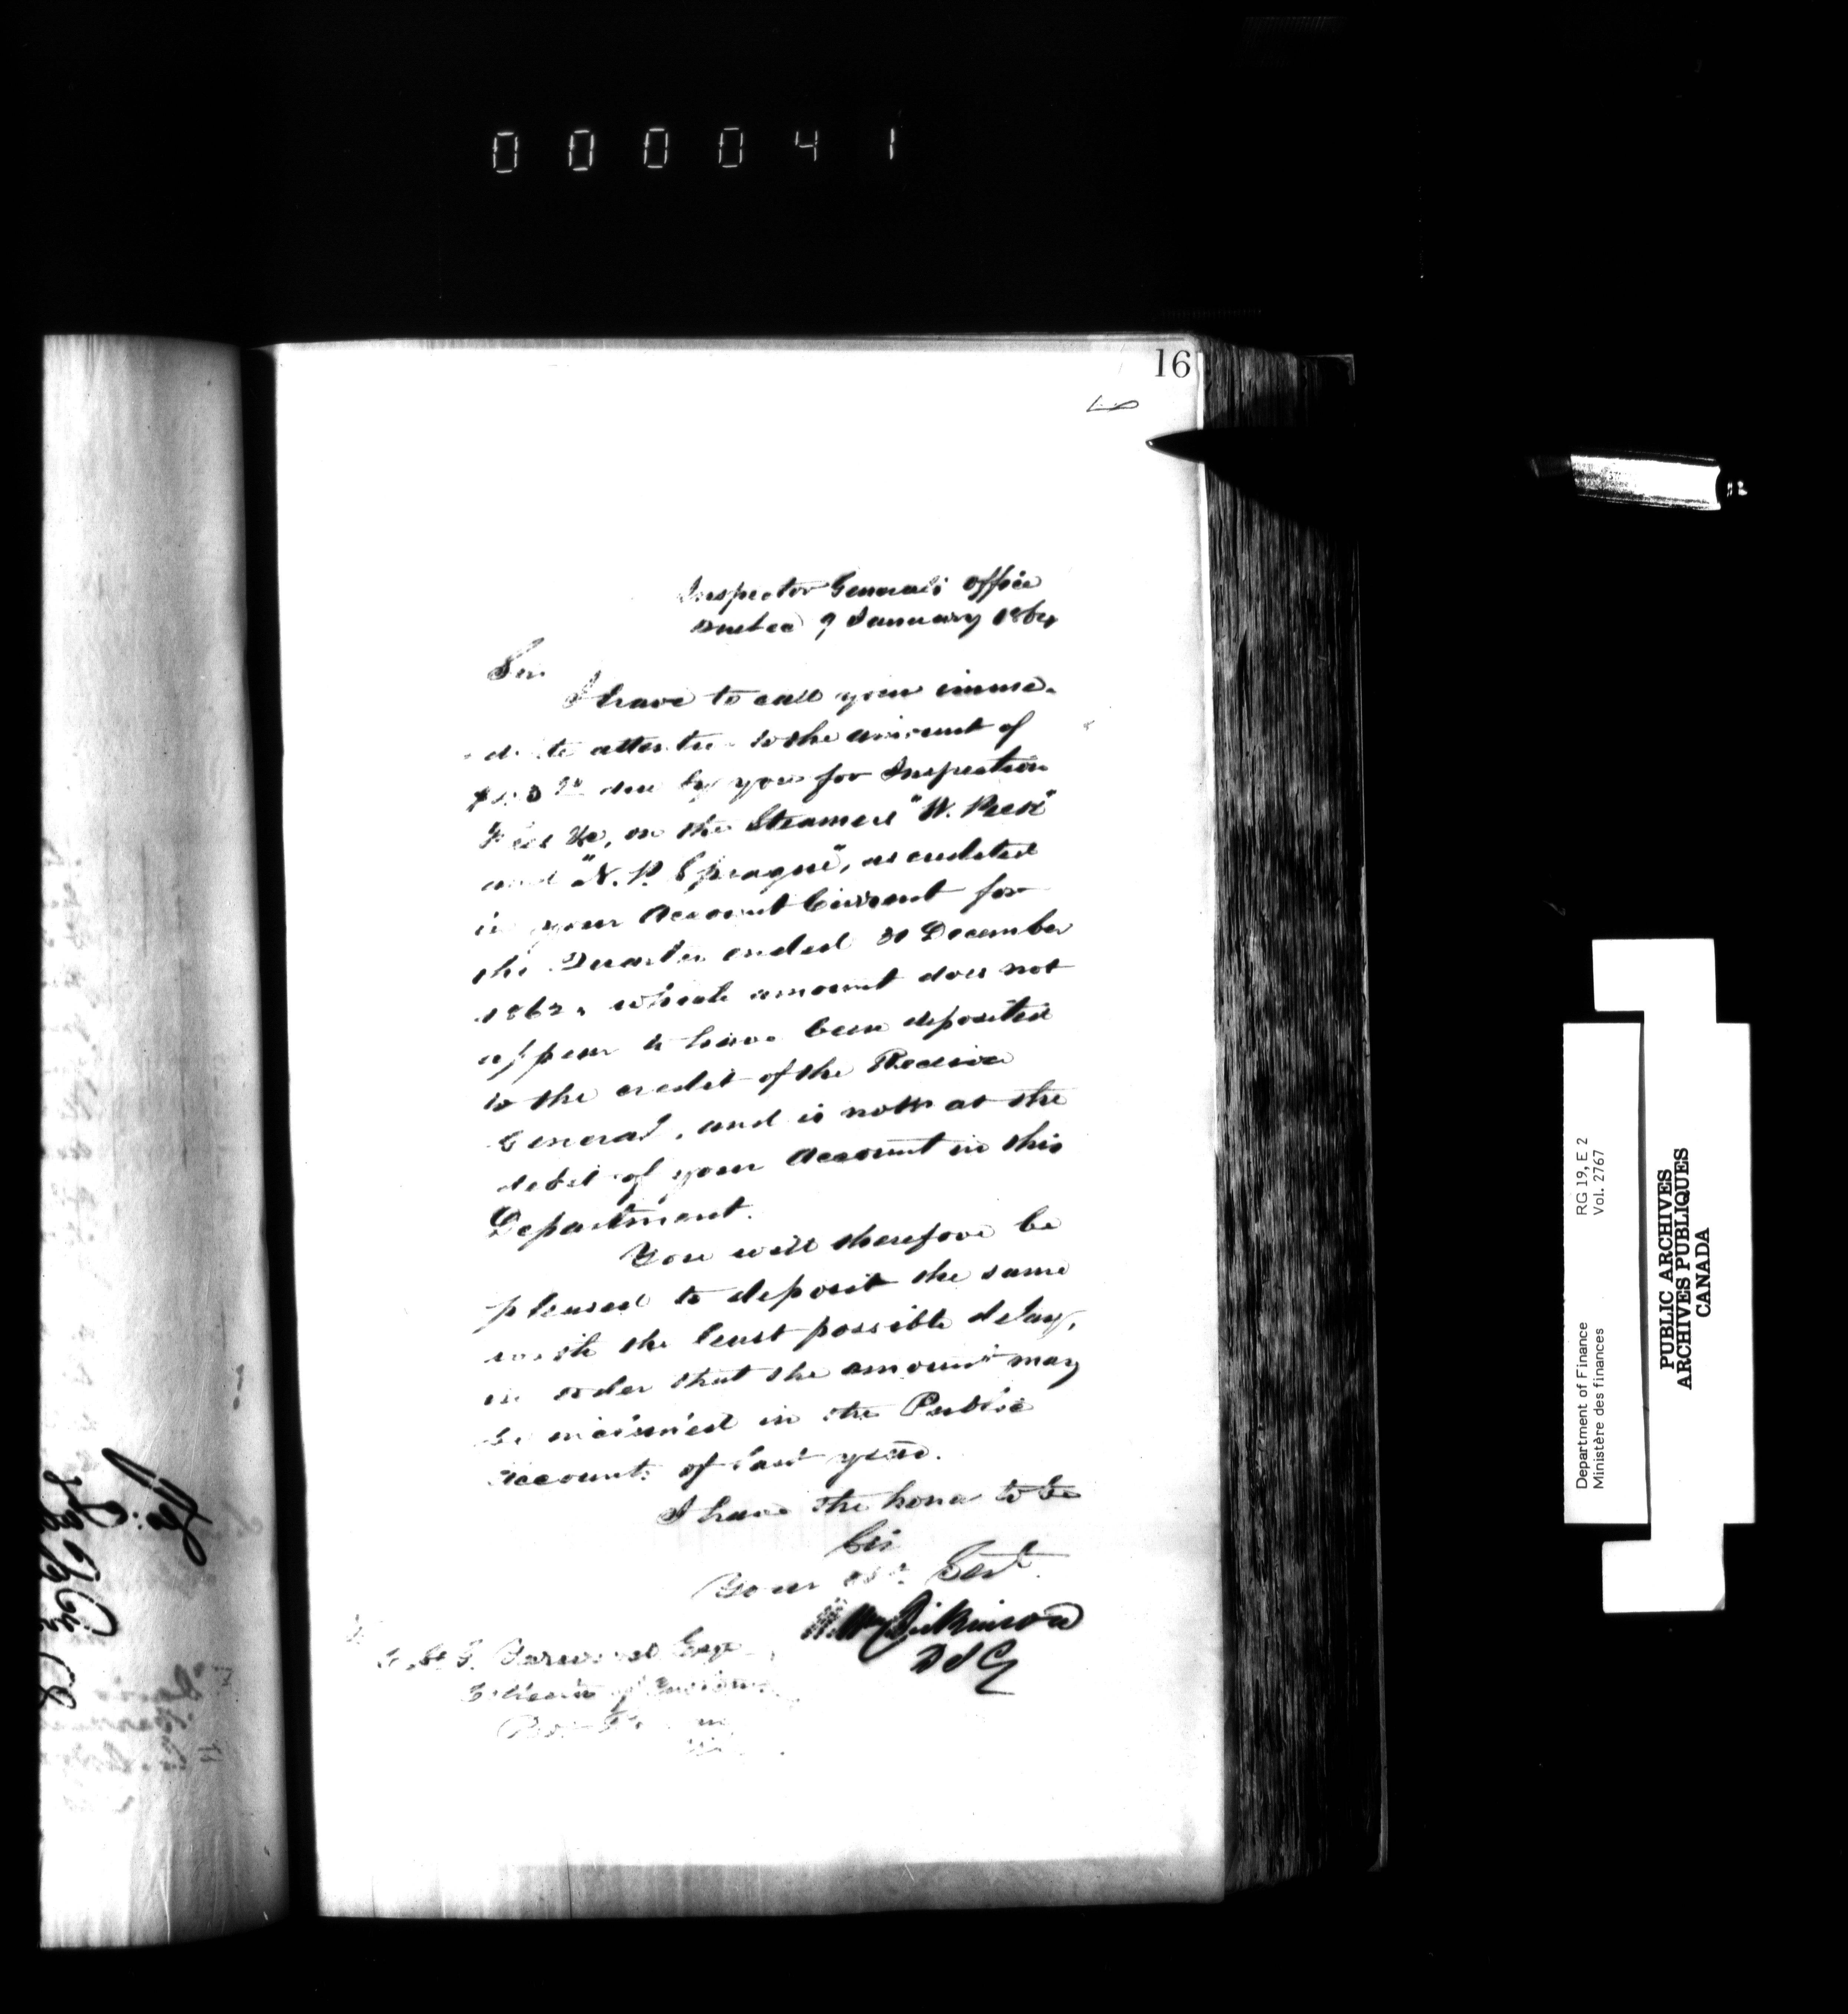 000041
16
Inspector General's Office
Quebec 9 January 1864
Sir
I have to call your imme-
diate attention to the amount of
due by you for Inspection
Fees &c, on the Steamers "W. Peck"
and "N. P. Sprague", as credited
in your Account Current for
the Quarter ended 31 December
which amount does not
appear to have been deposited
to the credit of the Receiver
General, and is now at the
debit of your Account in this
Department.
You will therefore be
pleased to deposit the same
with the least possible delay,
in order that the amount may
be included in the Public
Accounts of last year.
I have the honor to be
Sir
Your Obt. Servt.
Wm Dickinson
D I G
Esqr
Department of Finance
Ministère des finances
RG 19, E 2
Vol. 2767
PUBLIC ARCHIVES
ARCHIVES PUBLIQUES
CANADA